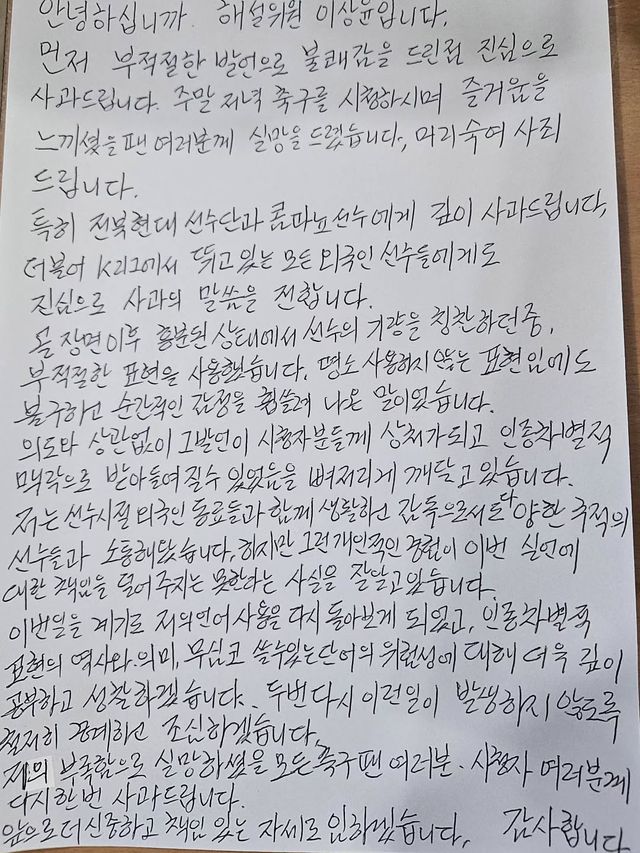 안녕하십니까. 해설위원 이상윤입니다.
먼저 부적절한 발언으로 불쾌감을 드린점 진심으로
사과드립니다. 주말 저녁 축구를 시청하시며 즐거움을
느끼셨을 팬 여러분께 실망을 드렸습니다, 머리숙여 사죄
드립니다.
특히 전북현대 선수단과 콤파뇨선수에게 깊이 사과드립니다,
더불어 K리그에서 뛰고 있는 모든 외국인 선수들에게도
진심으로 사과의 말씀을 전합니다.
골 장면이후 흥분된 상태에서 선수의 기량을 칭찬하던중,
부적절한 표현을 사용했습니다. 평소 사용하지 않는 표현임에도
불구하고 순간적인 감정을 휩쓸려 나온 말이었습니다.
의도와 상관없이 그발언이 시청자분들께 상처가되고 인종차별적
맥락으로 받아들여 질수 있었음을 뼈저리게 깨닫고 있습니다.
저는 선수시절 외국인 동료들과 함께 생활하고 감독으로서도 다양한 국적의
선수들과 소통해왔습니다, 하지만 그런 개인적인 경험이 이번 실언에
대한 책임을 덜어 주지는 못한다는 사실을 잘알고있습니다.
이번일을 계기로 저의언어 사용을 다시 돌아보게 되었고, 인종차별적
표현의 역사와 의미, 무심코 쓸수있는단어의 위험성에 대해 더욱 깊이
공부하고 성찰하겠습니다. 두번다시 이런일이 발생하지 않도록
철저히 경계하고 조심하겠습니다,
저의 부족함으로 실망하셨을 모든 축구팬 여러분·시청자 여러분께
다시한번 사과드립니다.
앞으로 더 신중하고 책임 있는 자세로 임하겠습니다, 감사합니다